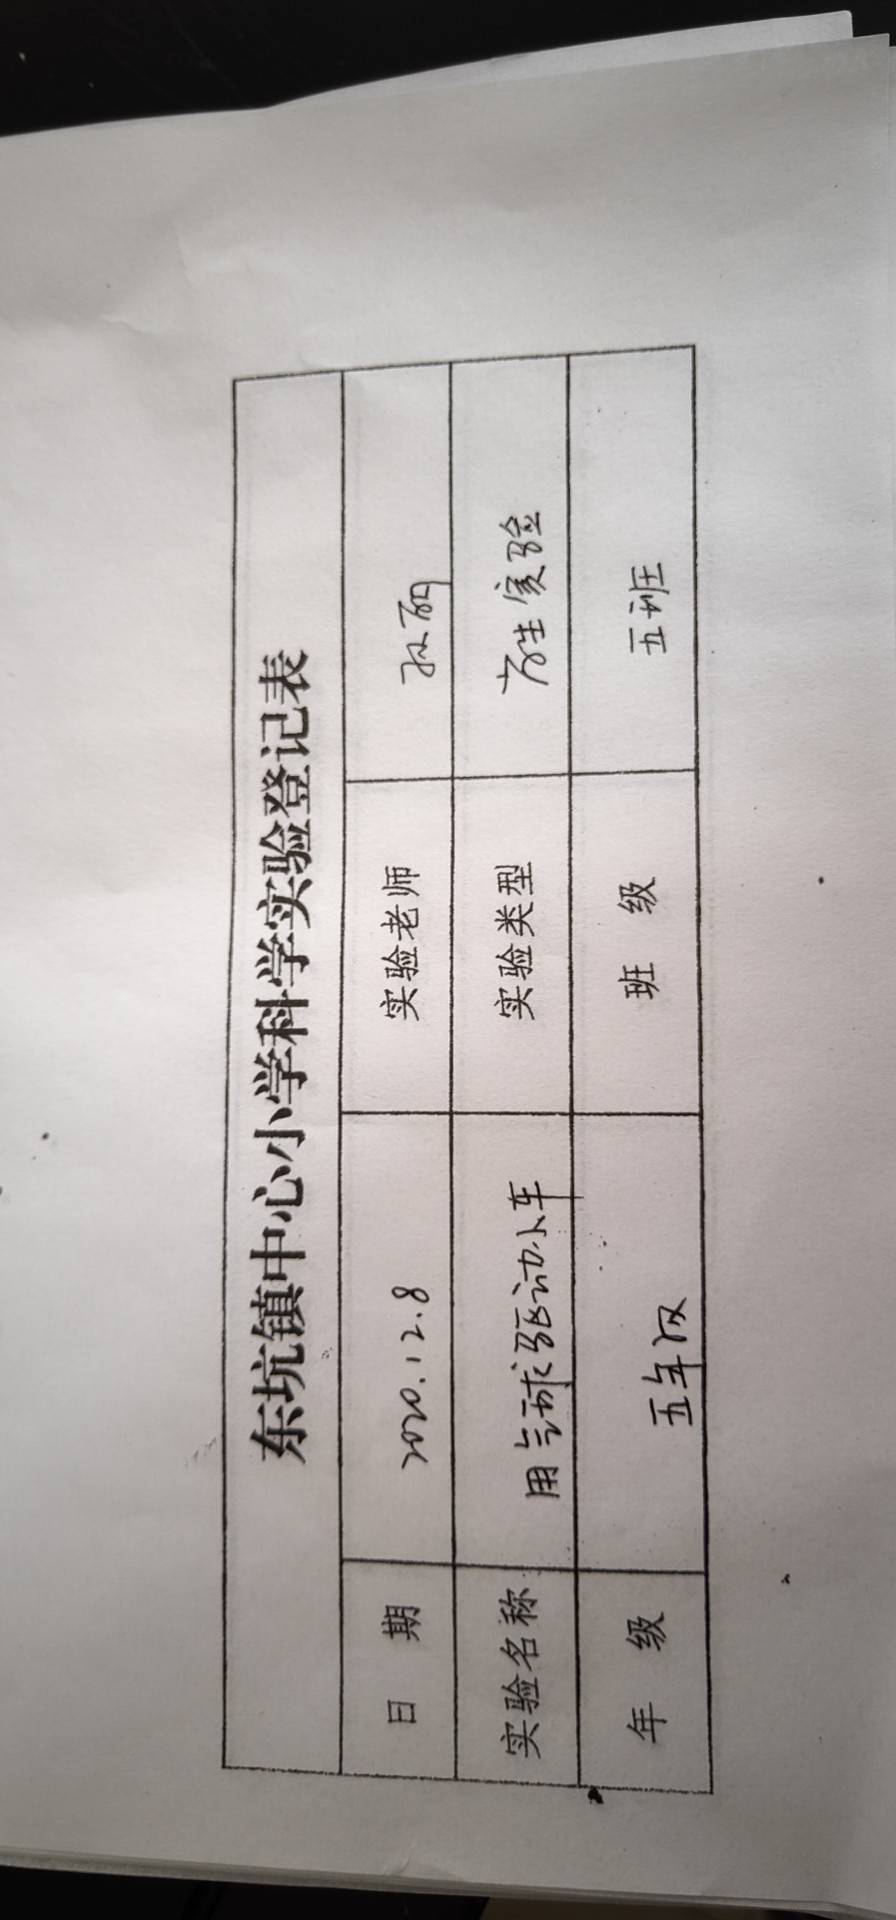 东坑镇中心小学科学实验登记表
日 期 2020.12.8 实验老师
实验名称 用气球驱动小车 实验类型 学生实验
年 级 五年级 班 级 五班